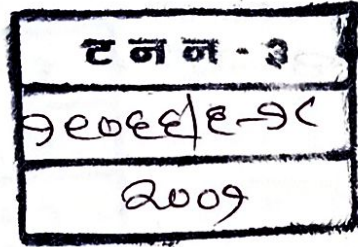 ट न न - ३
१९०६६/६-१८
२००१